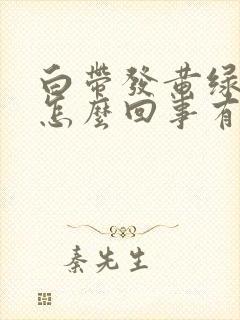 白帶發黃綠
怎麼回事有
秦先生